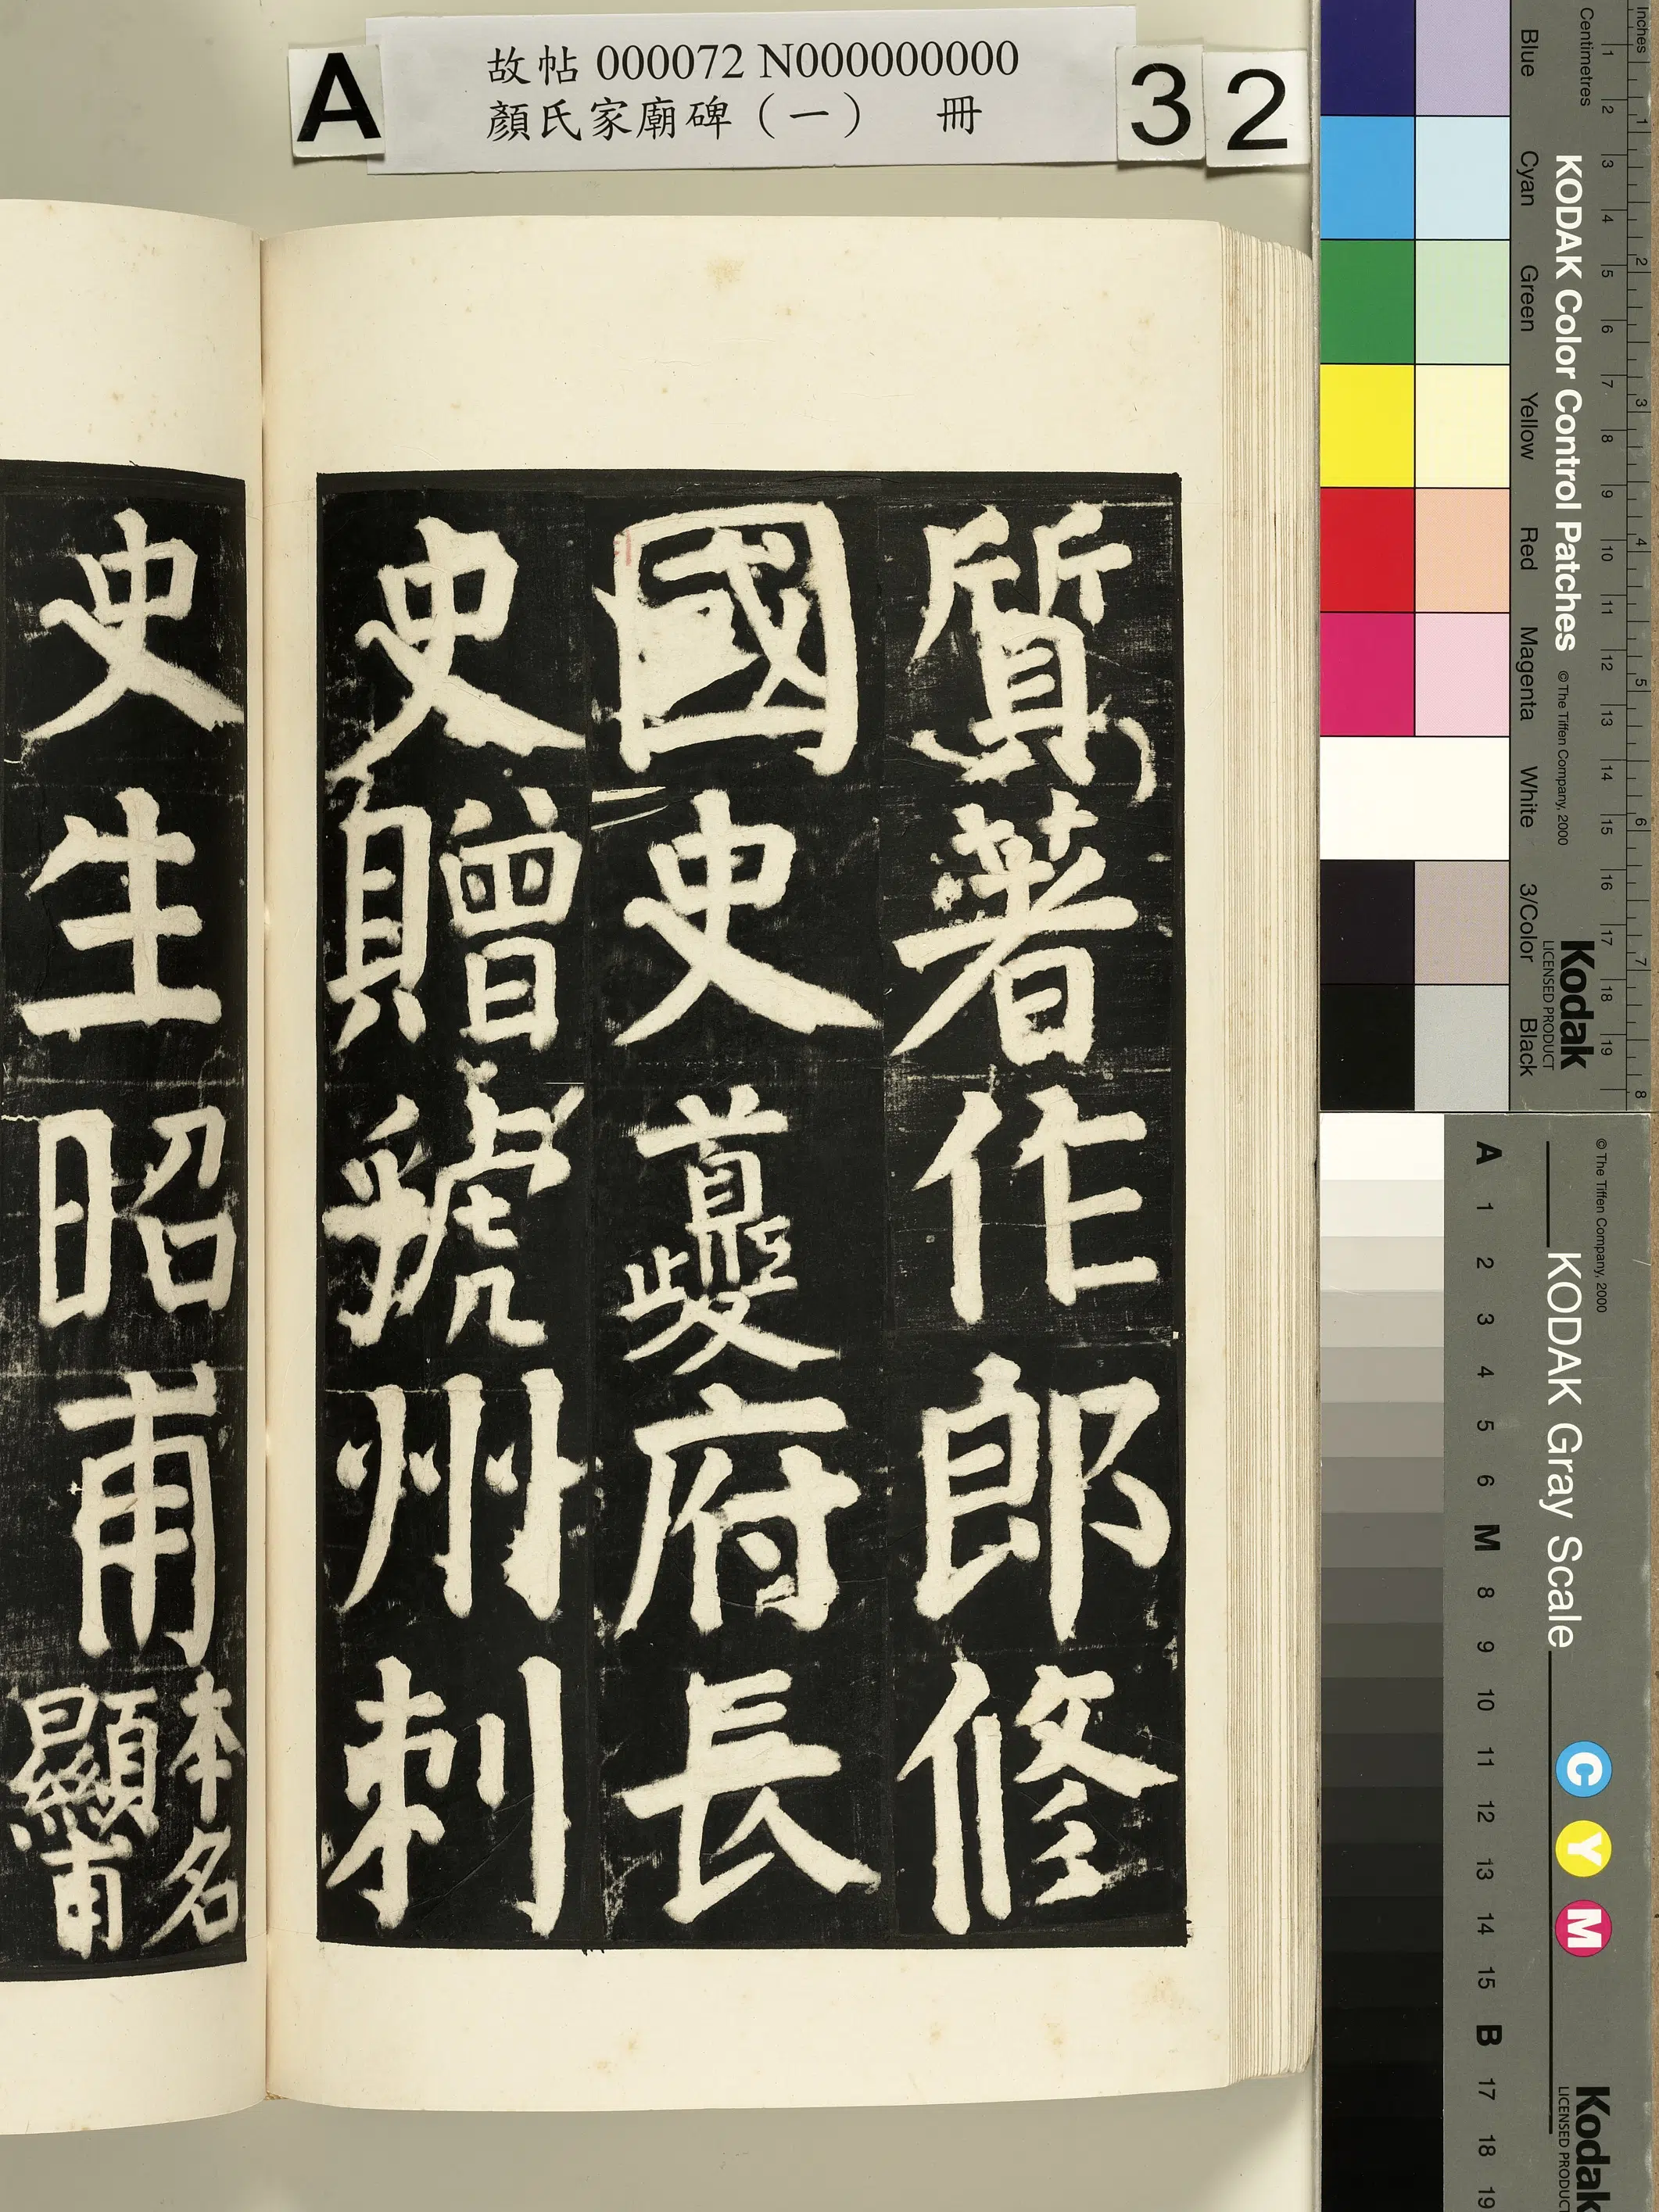 A
故帖 000072 N000000000
顏氏家廟碑（一） 冊
3 2
質著作郎修
國史夔府長
史贈虢州刺
史生昭甫
本名
顯甫
Inches 1 2 3 4 5 6 7 8
Centimetres 1 2 3 4 5 6 7 8 9 10 11 12 13 14 15 16 17 18 19
KODAK Color Control Patches © The Tiffen Company, 2000
Kodak
LICENSED PRODUCT
Blue Cyan Green Yellow Red Magenta White 3/Color Black
© The Tiffen Company, 2000
KODAK Gray Scale
C Y M
Kodak
LICENSED PRODUCT
A 1 2 3 4 5 6 M 8 9 10 11 12 13 14 15 B 17 18 19